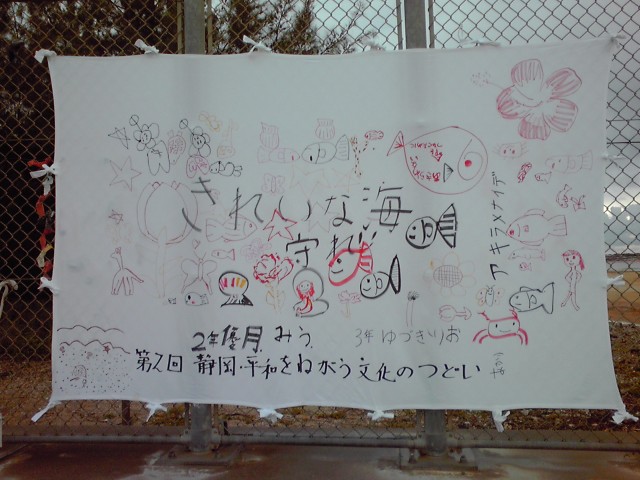 きれいな海
守れ!!
アキラメナイデ
2年 優月 みう
3年 ゆづき りお
第2回 静岡・平和をねがう文化のつどい